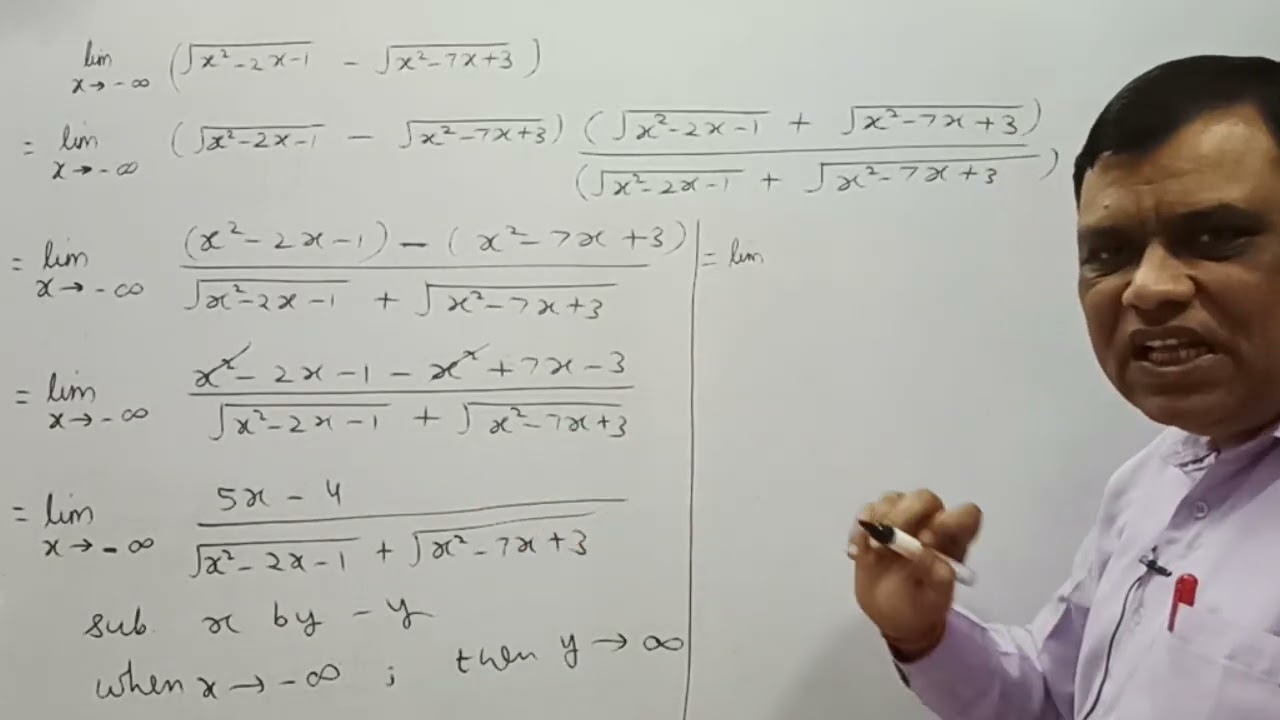 lim x→-∞ (√(x²-2x-1) - √(x²-7x+3))
= lim x→-∞ (√(x²-2x-1) - √(x²-7x+3)) (√(x²-2x-1) + √(x²-7x+3)) / (√(x²-2x-1) + √(x²-7x+3))
= lim x→-∞ (x²-2x-1) - (x²-7x+3) / √(x²-2x-1) + √(x²-7x+3)
= lim x→-∞ x²-2x-1-x²+7x-3 / √(x²-2x-1) + √(x²-7x+3)
= lim x→-∞ 5x-4 / √(x²-2x-1) + √(x²-7x+3)
sub. x by -y
when x→-∞ ; then y→∞
= lim